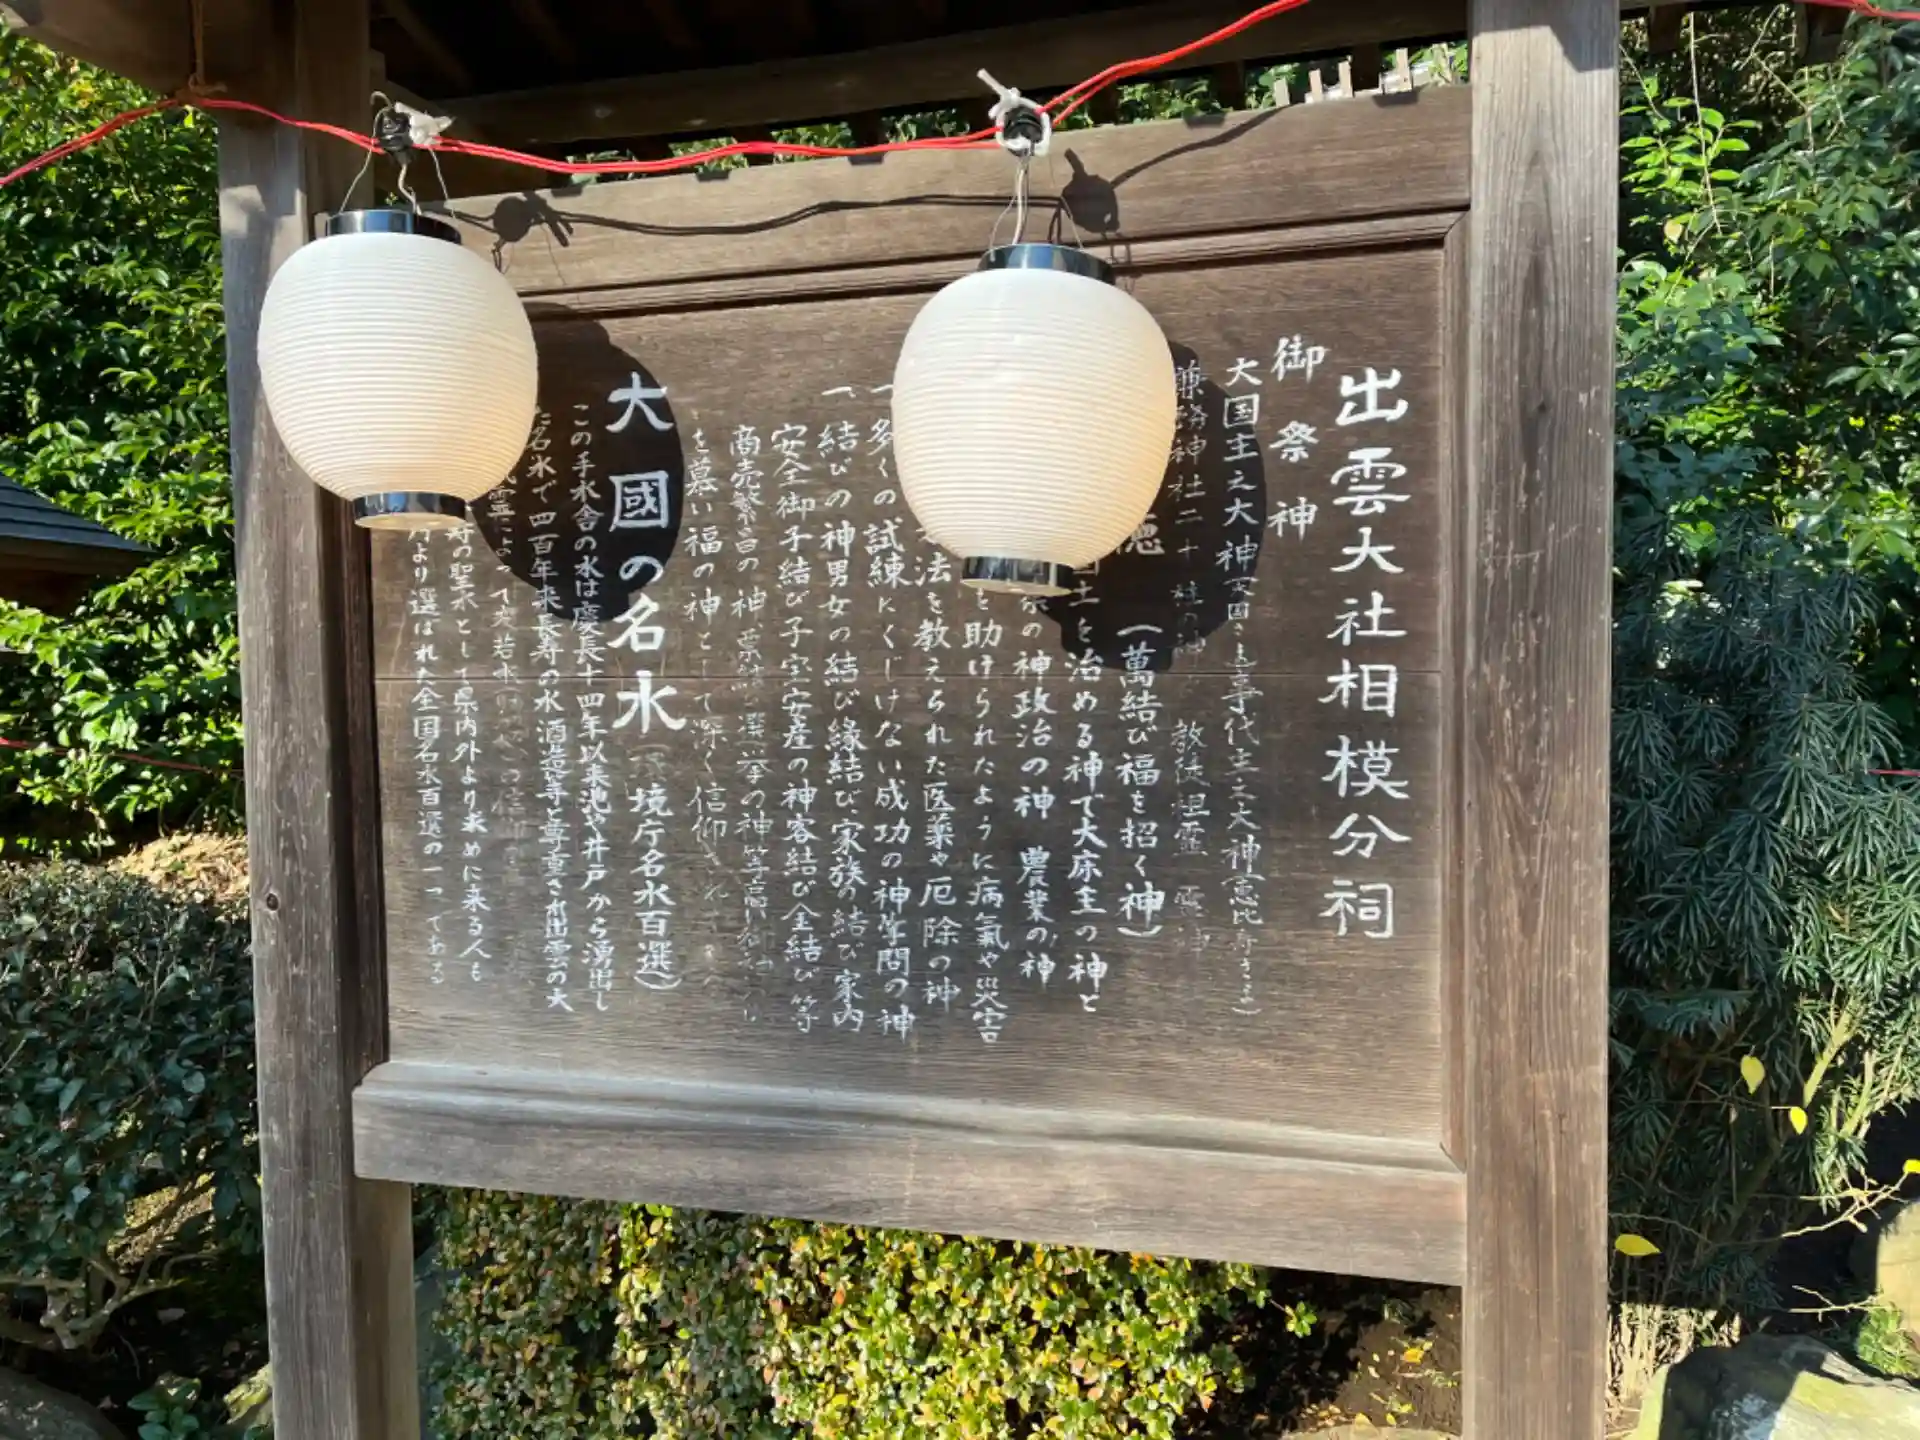 出雲大社相模分祠
御祭神
大国主之大神(大国さま)事代主之大神(恵比寿さま)
兼務神社二十社の神 教徒祖霊 霊神
徳(萬結び福を招く神)
国主を治める神で大床主の神と
の神政治の神 農業の神
を助けられたように病氣や災害
法を教えられた医薬や厄除の神
一、多くの試練にくじけない成功の神学問の神
一、結びの神男女の結び縁結び、家族の結び家内
安全御子結び子宝安産の神客結び金結び等
商売繁昌の神、票結び選挙の神等
を慕い福の神として深く信仰され
大國の名水(境庁名水百選)
この手水舎の水は慶長十四年以来池や井戸から湧出し
た名水で四百年来長寿の水酒造等と尊重され出雲の大
霊によって変若水の信仰
寿の聖水として県内外より求めに来る人も
より選ばれた全国名水百選の一つである